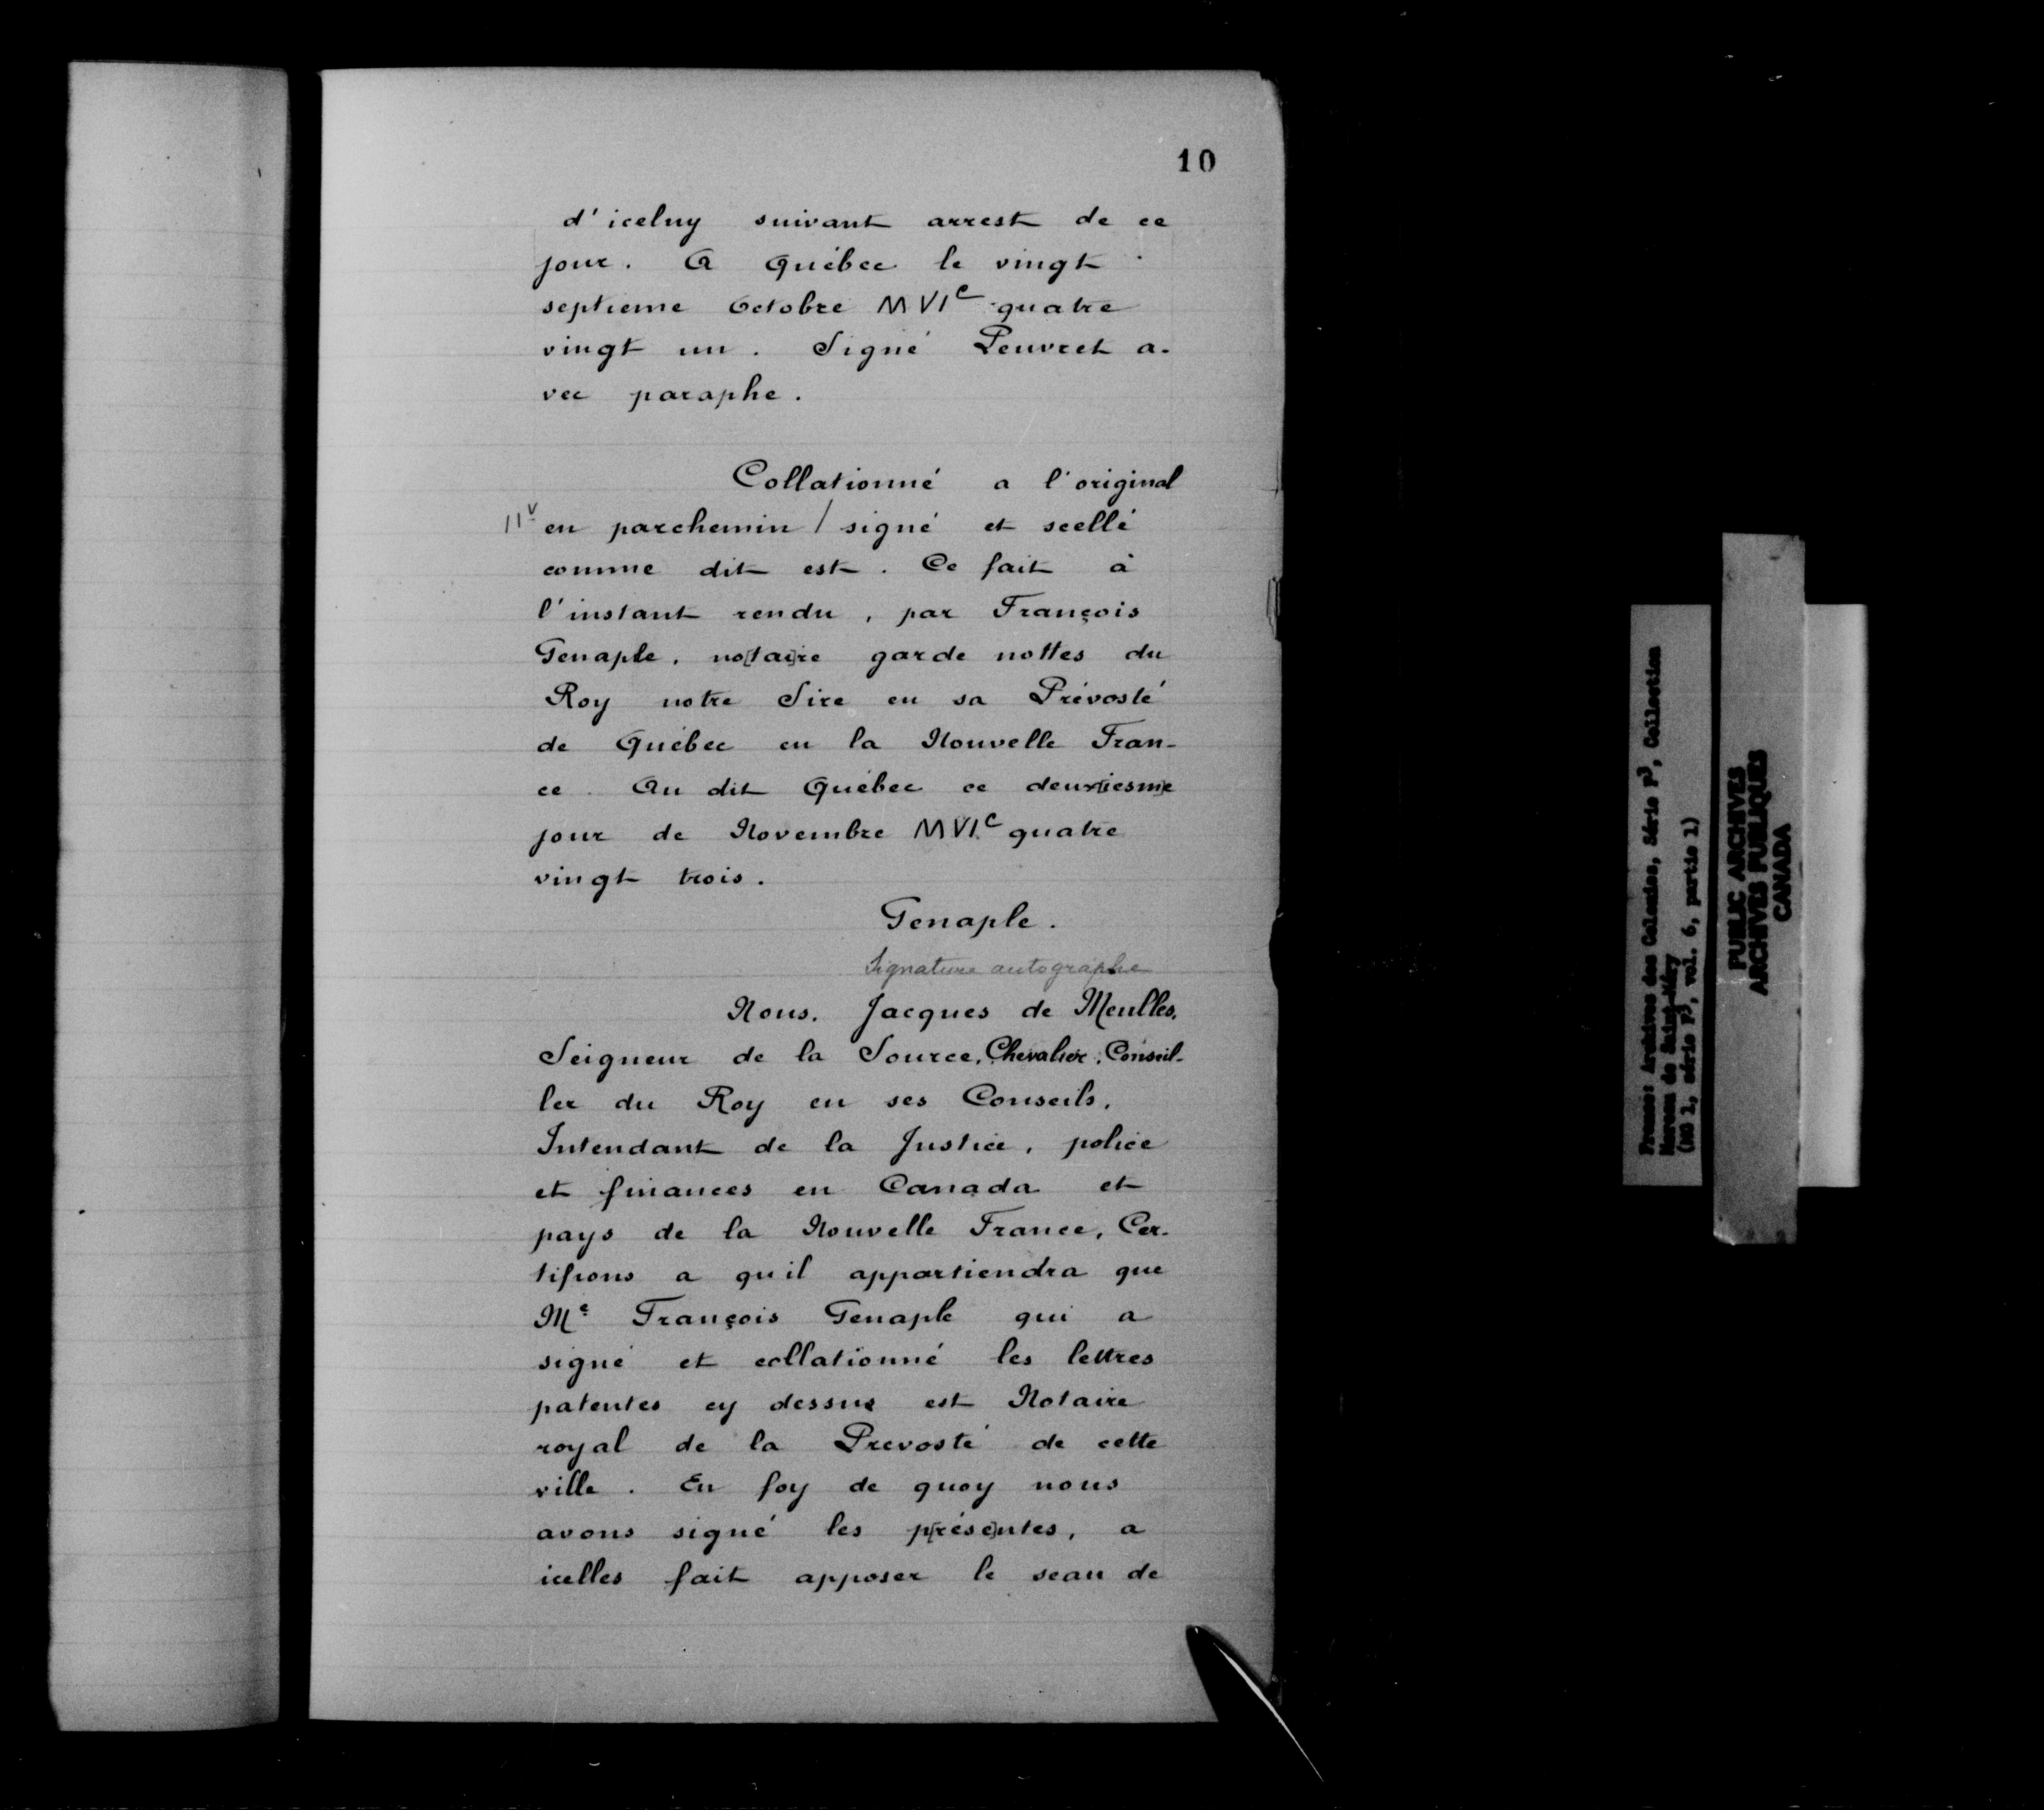 10
d'iceluy suivant arrest de ce
jour. A Québec le vingt
septieme Octobre MVIᶜ quatre
vingt un. Signé Peuvret a-
vec paraphe.
Collationné a l'original
11ᵛ en parchemin / signé et scellé
comme dit est. Ce fait à
l'instant rendu, par François
Genaple, no[tai]re garde nottes du
Roy notre Sire en sa Prévosté
de Québec en la Nouvelle Fran-
ce. Au dit Québec ce deux[iesm]e
jour de Novembre MVIᶜ quatre
vingt trois.
Genaple.
Signature autographe
Nous, Jacques de Meulles,
Seigneur de la Source, Chevalier, Conseil-
ler du Roy en ses Conseils,
Intendant de la Justice, police
et finances en Canada et
pays de la Nouvelle France, Cer-
tifions a qu'il appartiendra que
Mᵉ François Genaple qui a
signé et collationné les lettres
patentes cy dessus est Notaire
royal de la Prevosté de cette
ville. En foy de quoy nous
avons signé les p[rése]ntes, a
icelles fait apposer le seau de
France: Archives des Colonies, Série F³, Collection
Moreau de Saint-Méry
(MG 1, série F³, vol. 6, partie 1)
PUBLIC ARCHIVES
ARCHIVES PUBLIQUES
CANADA